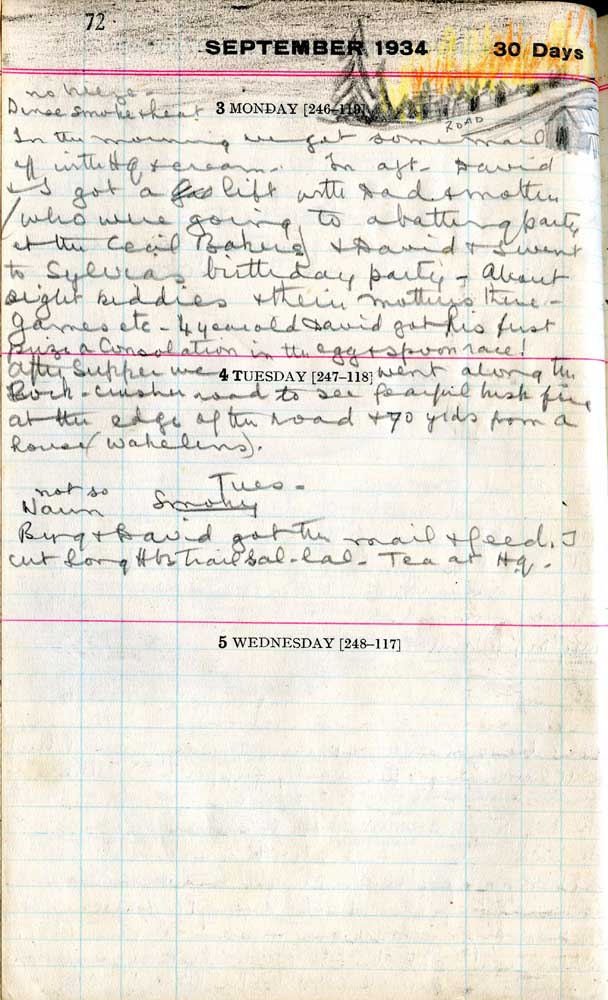 72
SEPTEMBER 1934 30 Days
ROAD
no breeze -
Dense smoke & heat
3 MONDAY [246–119]
In the morning we got some mail
off in the Hq & cream. In aft. David
& I got a lift with Dad & mother
(who were going to a bathing party
at the Cecil Bakers) & David & I went
to Sylvia's birthday party - About
eight kiddies & their mothers there -
Games etc - 4 year old David got his first
prize a Consolation in the egg & spoon race!
After Supper we went along the
4 TUESDAY [247–118]
Rock-crusher road to see fearful bush fire
at the edge of the road & 70 yrds from a
house (Wakelins).
Tues -
not so
Warm Smoky
Byng & David got the mail & feed. I
cut long Hbs trail Sal-lal - Tea at Hq -
5 WEDNESDAY [248–117]